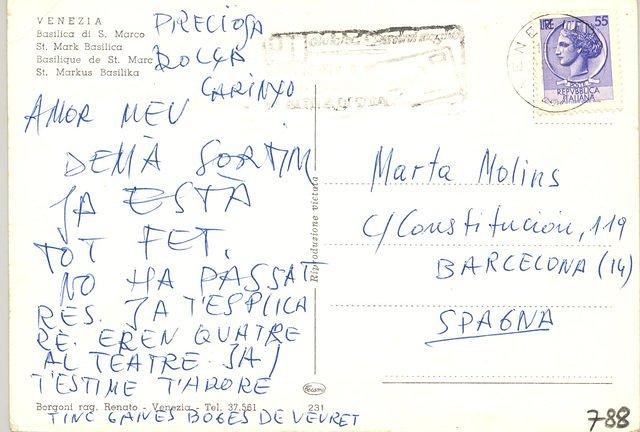 VENEZIA
Basilica di S. Marco
St. Mark Basilica
Basilique de St. Marc
St. Markus Basilika
PRECIOSA
ROLLA
CARINYO
AMOR MEU
DEMÀ SORTIM
JA ESTÀ
TOT FET.
NO HA PASSAT
RES. JA T'ESPLICA
RÉ. EREN QUATRE
AL TEATRE JA!
T'ESTIME T'ADORE
TINC GANES BOGES DE VEURET
Borgoni rag. Renato - Venezia - Tel. 37.561
231
Riproduzione vietata
LIRE 55
POSTE
REPVBBLICA
ITALIANA
Marta Molins
C/Constitución, 119
BARCELONA (14)
SPAGNA
788